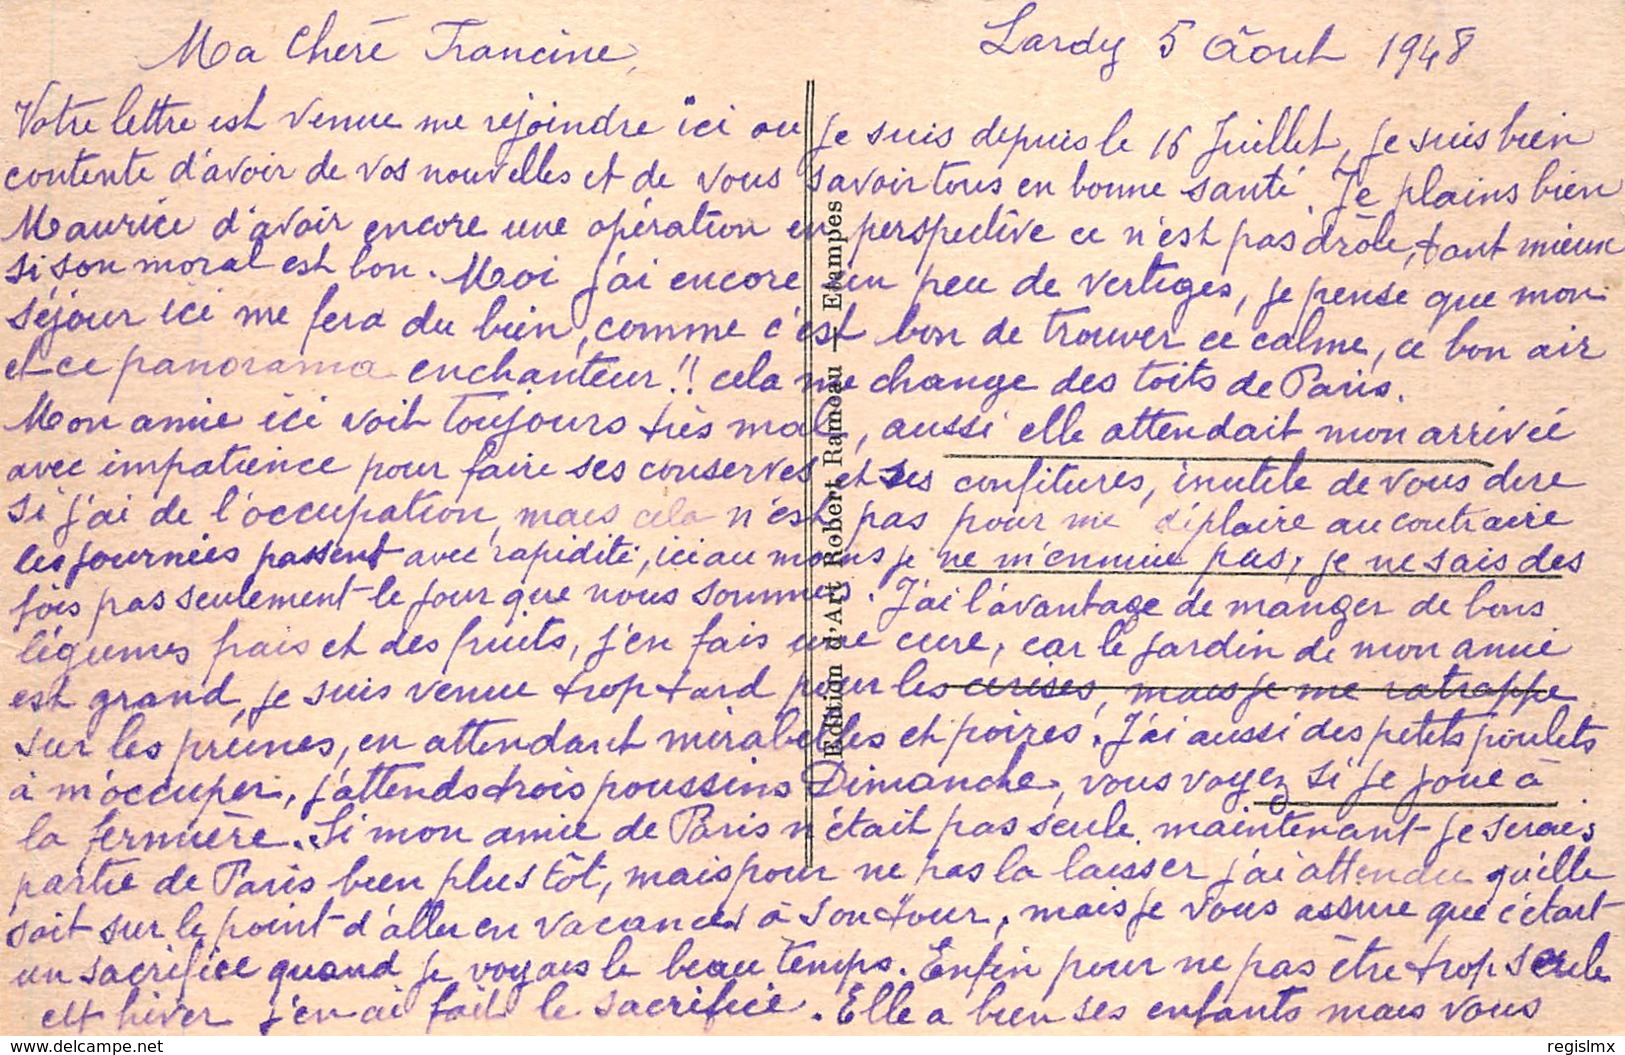 Ma Chère Francine,
Lardy 5 Août 1948
Votre lettre est venue me rejoindre ici ou je suis depuis le 16 Juillet, je suis bien
contente d'avoir de vos nouvelles et de vous savoir tous en bonne santé. Je plains bien
Maurice d'avoir encore une opération en perspective ce n'est pas drôle, tant mieux
si son moral est bon. Moi j'ai encore un peu de vertiges, je pense que mon
séjour ici me fera du bien, comme c'est bon de trouver ce calme, ce bon air
et ce panorama enchanteur!! cela me change des toits de Paris.
Mon amie ici voit toujours très mal, aussi elle attendait mon arrivée
avec impatience pour faire ses conserves et ses confitures, inutile de vous dire
si j'ai de l'occupation, mais cela n'est pas pour me déplaire au contraire
les journées passent avec rapidité, ici au moins je ne m'ennuie pas, je ne sais des
fois pas seulement le jour que nous sommes. J'ai l'avantage de manger de bons
légumes frais et des fruits, j'en fais une cure, car le jardin de mon amie
est grand, je suis venue trop tard pour les cerises, mais je me rattrappe
sur les prunes, en attendant mirabelles et poires. J'ai aussi des petits poulets
à m'occuper, j'attends trois poussins Dimanche, vous voyez si je joue à
la fermière. Si mon amie de Paris n'était pas seule maintenant je serais
partie de Paris bien plus tôt, mais pour ne pas la laisser j'ai attendu qu'elle
soit sur le point d'aller en vacances à son tour, mais je vous assure que c'était
un sacrifice quand je voyais le beau temps. Enfin pour ne pas être trop seule
cet hiver j'en ai fait le sacrifice. Elle a bien ses enfants mais vous
Edition d'Art Robert Rameau — Etampes
https://www.delcampe.net
regislmx